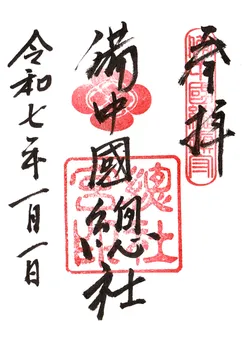 奉拝
備中國總社
總社宮
令和七年一月一日